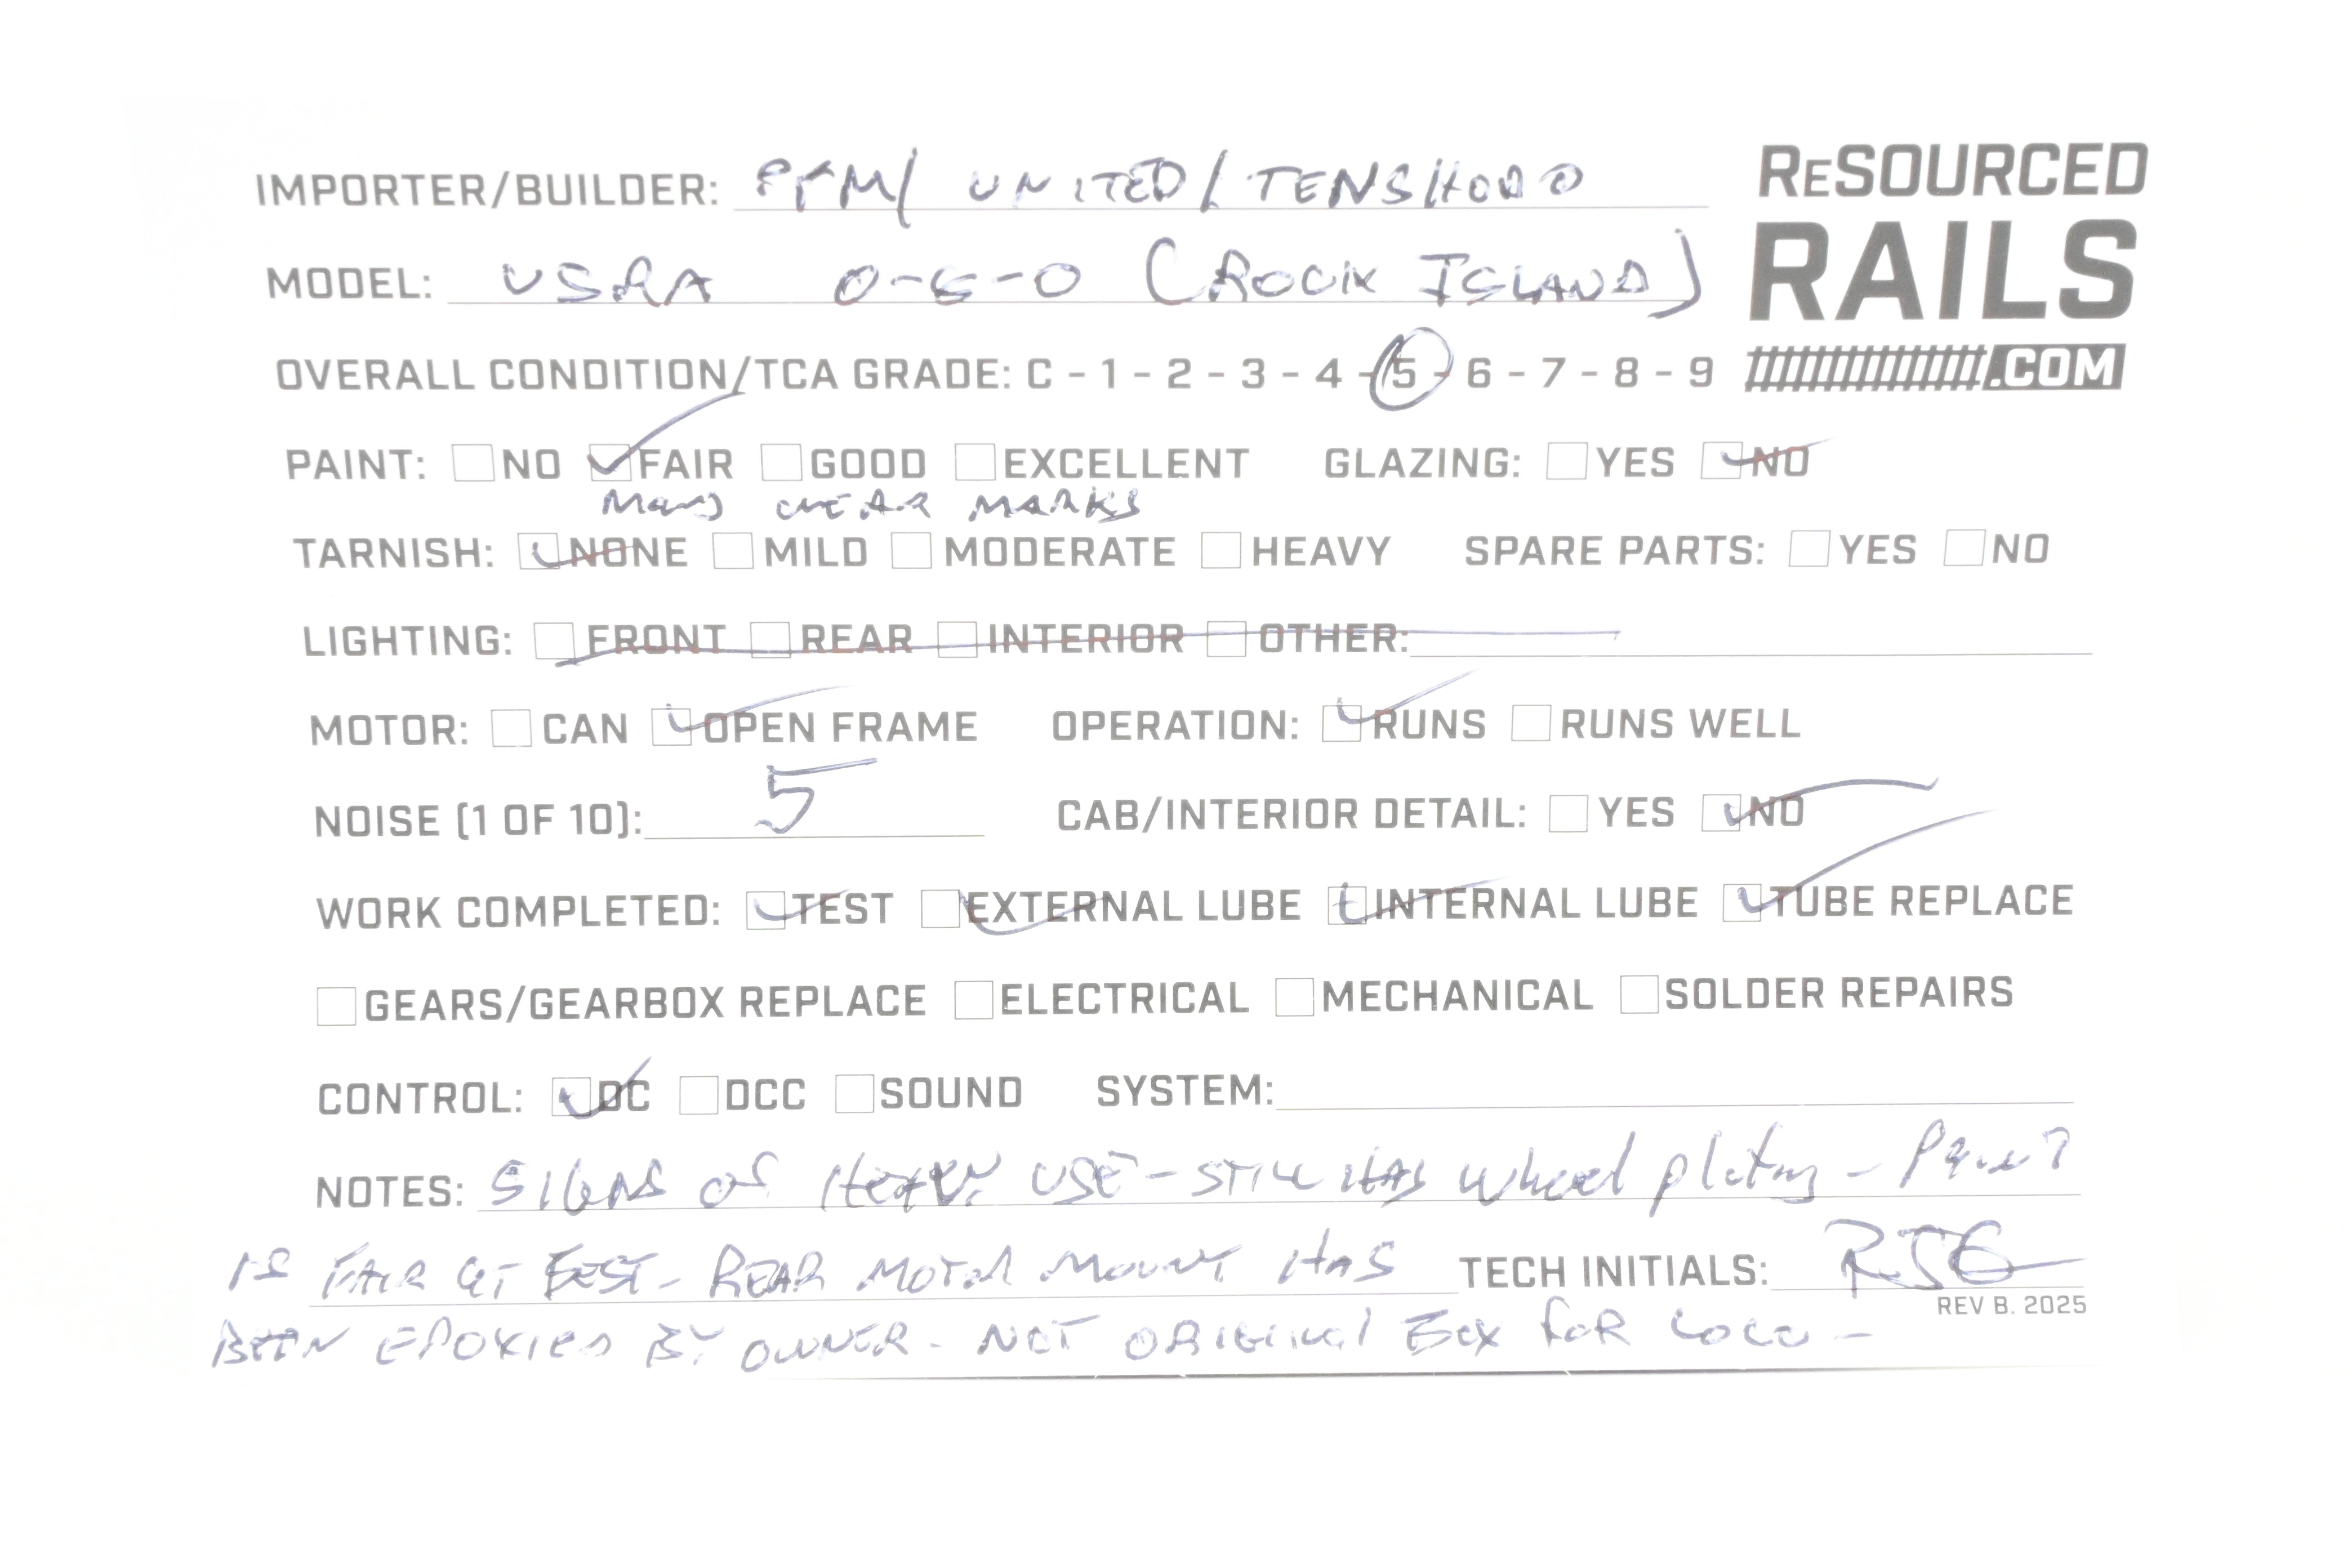 IMPORTER/BUILDER: PFM/ UNITED/ TENSHODO
ReSOURCED
RAILS
.COM
MODEL: USRA 0-6-0 (ROCK ISLAND)
OVERALL CONDITION/TCA GRADE: C - 1 - 2 - 3 - 4 - 5 - 6 - 7 - 8 - 9
PAINT: NO FAIR GOOD EXCELLENT GLAZING: YES NO
Many WEAR MARKS
TARNISH: NONE MILD MODERATE HEAVY SPARE PARTS: YES NO
LIGHTING: FRONT REAR INTERIOR OTHER:
MOTOR: CAN OPEN FRAME OPERATION: RUNS RUNS WELL
NOISE (1 OF 10): 5 CAB/INTERIOR DETAIL: YES NO
WORK COMPLETED: TEST EXTERNAL LUBE INTERNAL LUBE TUBE REPLACE
GEARS/GEARBOX REPLACE ELECTRICAL MECHANICAL SOLDER REPAIRS
CONTROL: DC DCC SOUND SYSTEM:
NOTES: SIGNS OF HEAVY USE - STILL HAS wheel plating - Paint
IS FAIR AT BEST - REAR MOTOR MOUNT HAS TECH INITIALS: RJG
REV B. 2025
BEEN EPOXIED BY OWNER - NOT ORIGINAL BOX FOR LOCO -